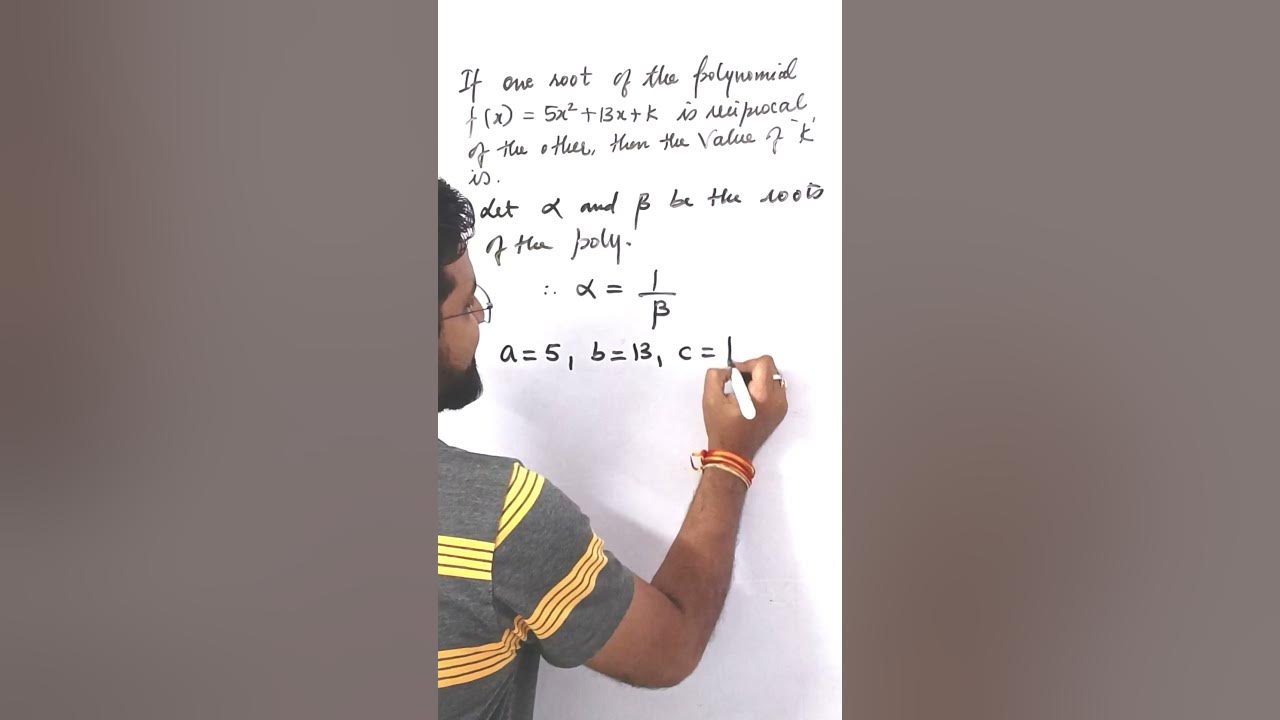 If one root of the polynomial
f(x) = 5x² + 13x + k is reciprocal
of the other, then the value of 'K'
is.
Let α and β be the roots
of the poly.
∴ α = 1/β
a = 5, b = 13, c =